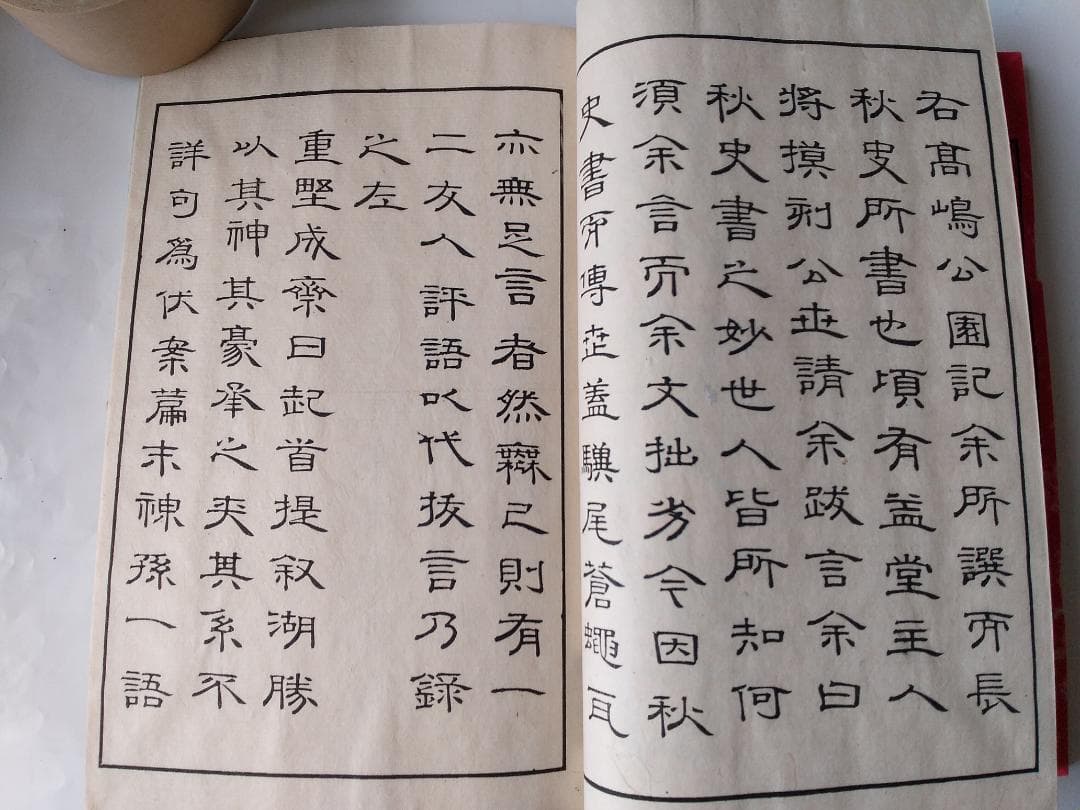 右髙嶋公園記余所譔而長
秋史所書也頃有益堂主人
將摸刻公世請余跋言余曰
秋史書之妙世人皆所知何
須余言而余文拙劣今因秋
史書而傳世蓋驥尾蒼蠅耳
亦無足言者然無已則有一
二友人評語以代拔言乃錄
之左
重墅成齋曰起首提叙湖勝
以其神其豪承之夾其系不
詳句爲伏案篇末神孫一語